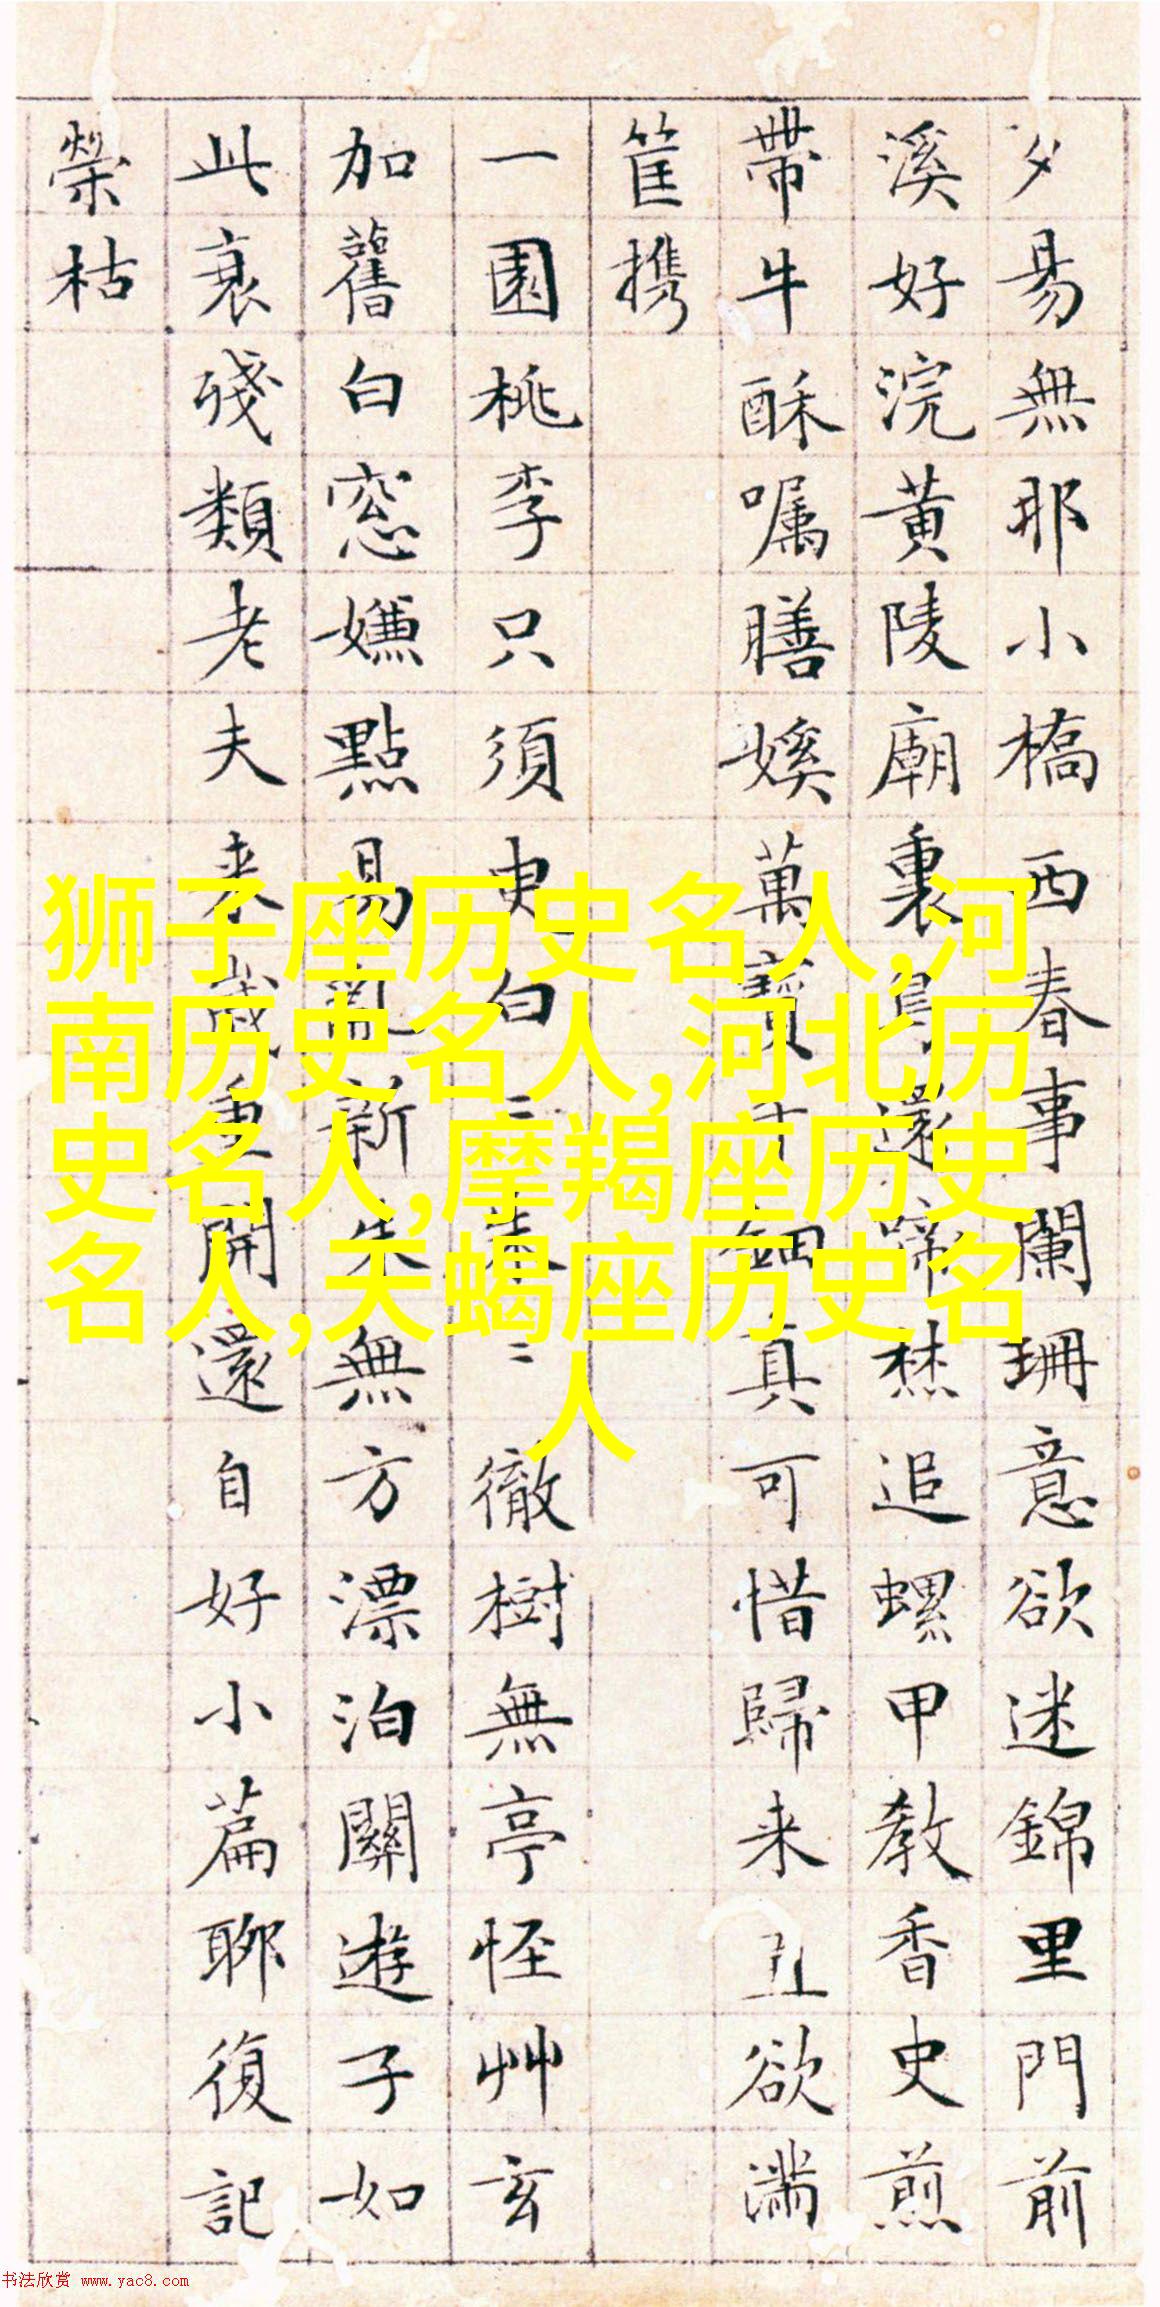 夕易無耶小橋西春事闌珊意欲迷錦里門前
溪好浣黃陵廟裏鳥還啼焚追螺甲教香史煎
帶牛酥囑膳媛萬寶千鈿真可惜歸来丑欲滿
筐携
一園桃李只須臾白三朱三徹樹無亭怪艸玄
加舊白窓嫌點易亂新朱無方漂泊關遊子如
此衰殘類老夫来歲重開還自好小篇聊復記
榮枯
狮子座历史名人,河
南历史名人,河北历
史名人,摩羯座历史
名人,天蝎座历史名
人
书法欣赏 www.yac8.com